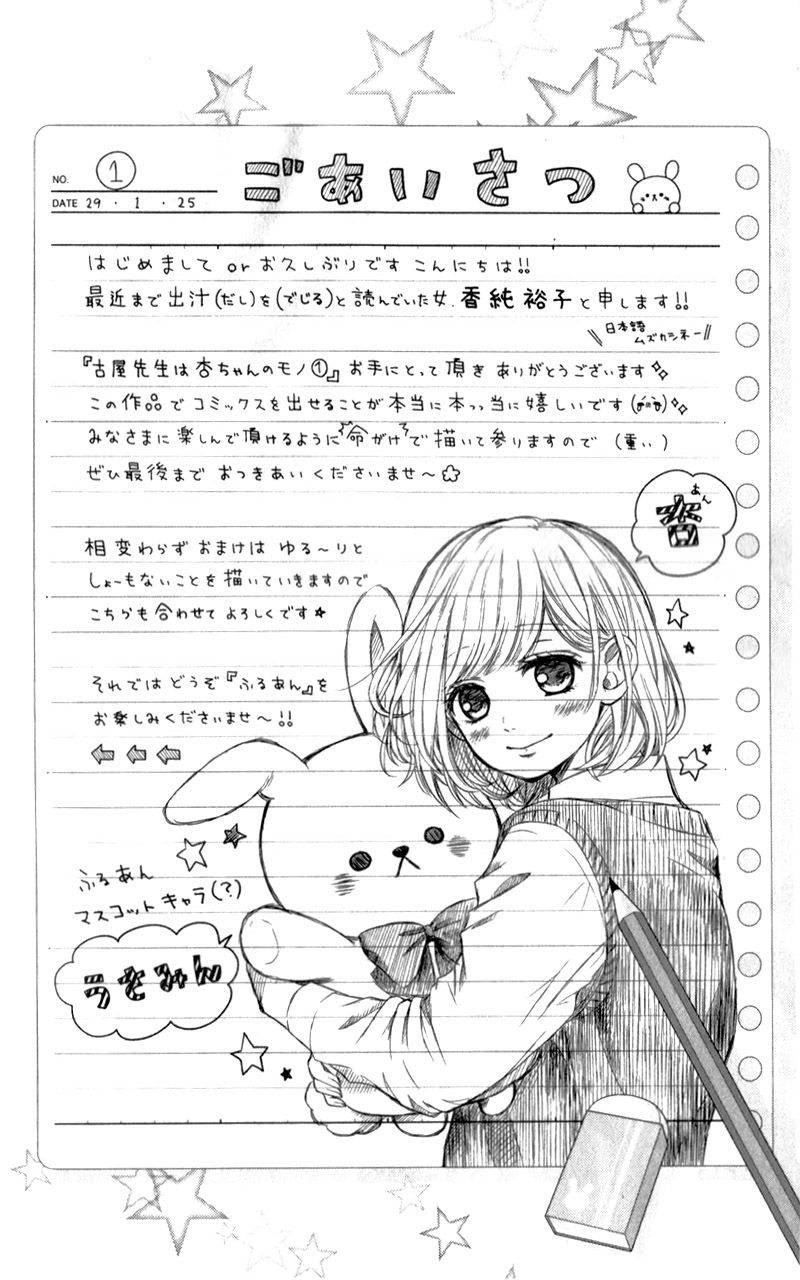 NO. ①
DATE 29・1・25
ごあいさつ
はじめまして or お久しぶりです こんにちは!!
最近まで出汁(だし)を(でじる)と読んでいた女、香純裕子と申します!!
日本語
ムズカシネー
『古屋先生は杏ちゃんのモノ①』お手にとって頂き ありがとうございます
この作品で コミックスを出せることが本当に本っっ当に嬉しいです
みなさまに楽しんで頂けるように命がけで描いて参りますので (重い)
ぜひ最後まで おつきあいくださいませ〜
あん
杏
相変わらず おまけは ゆる〜りと
しょーもないことを描いていきますので
こちらも合わせて よろしくです☆
それでは どうぞ『ふるあん』を
お楽しみくださいませ〜!!
←←←
ふるあん
マスコットキャラ(?)
うさみん